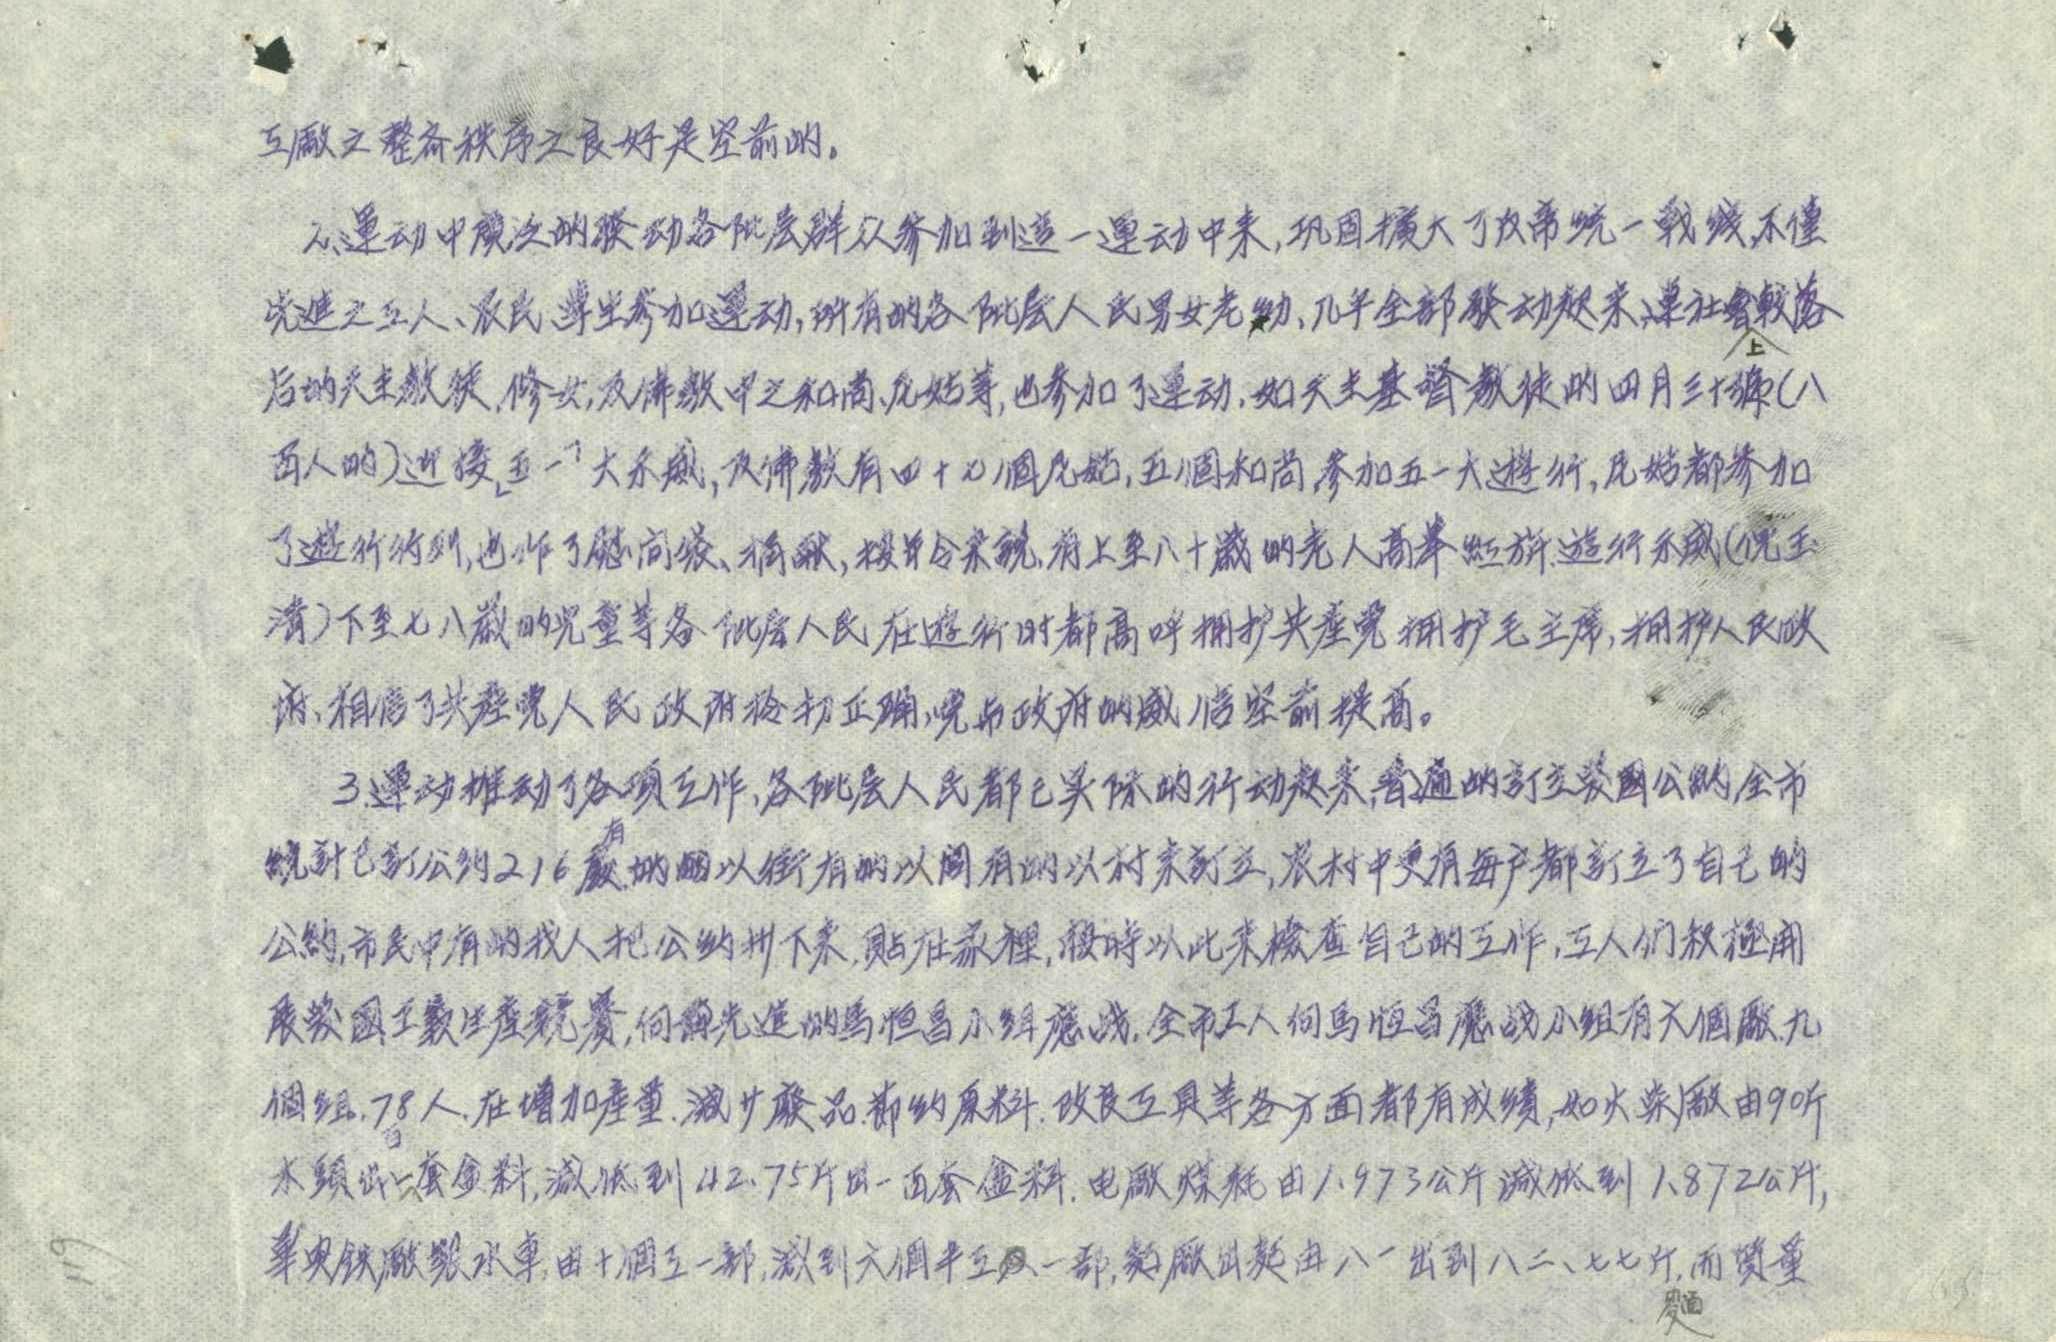 工廠之整齐秩序之良好是空前的。
2、運动中廣泛的發动各阶层群众参加到這一運动中来,巩固擴大了反帝統一戰綫,不僅
先進之工人、农民、學生参加運动,所有的各阶层人民男女老幼、几乎全部發动起来,連社會上較落
后的天主教徒,修女,及佛教中之和尚、尼姑等,也参加了運动,如天主基督教徒的四月三十號(八
百人的)迎接「五一」大示威,及佛教有四十七個尼姑,五個和尚,参加五一大遊行,尼姑都参加
了遊行行列,也作了慰问袋、捐献,按年令来説,有上至八十歲的老人高举紅旂遊行示威(倪玉
清)下至七八歲的児童等各阶层人民在遊行时都高呼拥护共產党拥护毛主席,拥护人民政
府,相信了共產党人民政府於初正确,党与政府的威信空前提高。
3、運动推动了各項工作,各阶层人民都已实际的行动起来,普遍的訂立爱國公約,全市
統計已訂公約216 有的以街有的以閭有的以村来訂立,农村中更有每户都訂立了自己的
公約,市民中有的找人把公約抄下来,貼在家裡,按時以此来檢查自己的工作,工人们积極開
展爱國主義生產競賽,向 先進的馬恒昌小組應战,全市工人向馬恒昌應战小組有六個廠九
個組,78人,在增加產量、減少廢品、節約原料、改良工具等各方面都有成績,如火柴廠由90斤
木頭出一百套盒料,減低到42.75斤出一百套盒料,电廠煤耗由1.973公斤減低到1.872公斤,
華 鉄廠 水車,由十個工一部,減到六個半工一部,麵廠出麵由八一出到八二、七七斤,而質量
麵
119